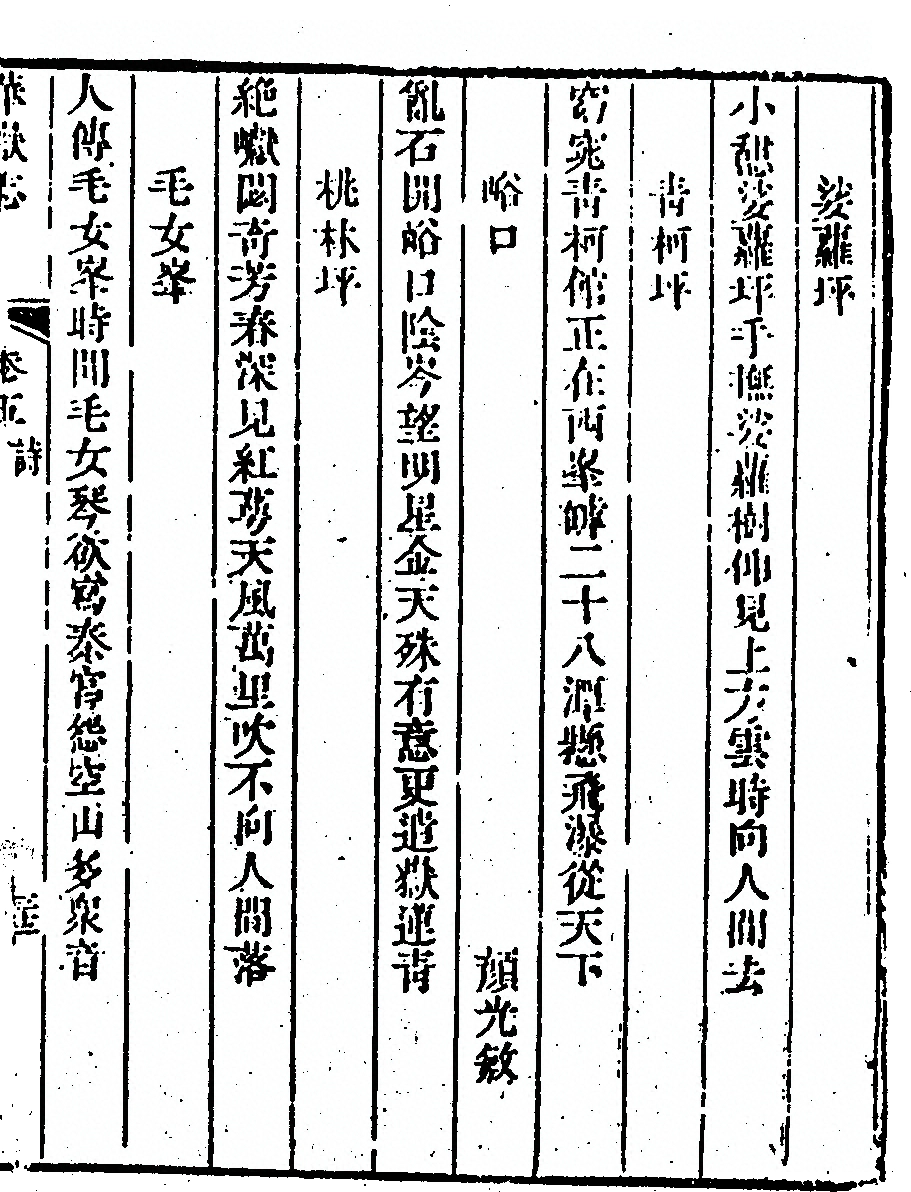 娑蘿坪
小憩娑蘿坪手撫娑蘿樹仰見上方雲時向人間去
青柯坪
窈窕青柯館正在西峯罅二十八潭懸飛瀑從天下
峪口　顏光敏
亂石開峪口陰岑望明星金天殊有意更遣嶽蓮青
桃林坪
絶巘閟奇芳春深見紅萼天風萬里吹不向人間落
毛女峯
人傳毛女峯時聞毛女琴欲寫秦宮怨空山多衆音
華嶽志
卷五 詩